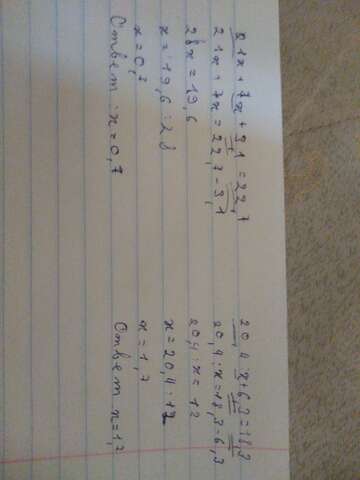 21x+7x+3,1=22,7
21x+7x=22,7-3,1
28x=19,6
x=19,6:28
x=0,7
Ответ: x=0,7
20,4:x+6,3=18,3
20,4:x=18,3-6,3
20,4:x=12
x=20,4:12
x=1,7
Ответ x=1,7